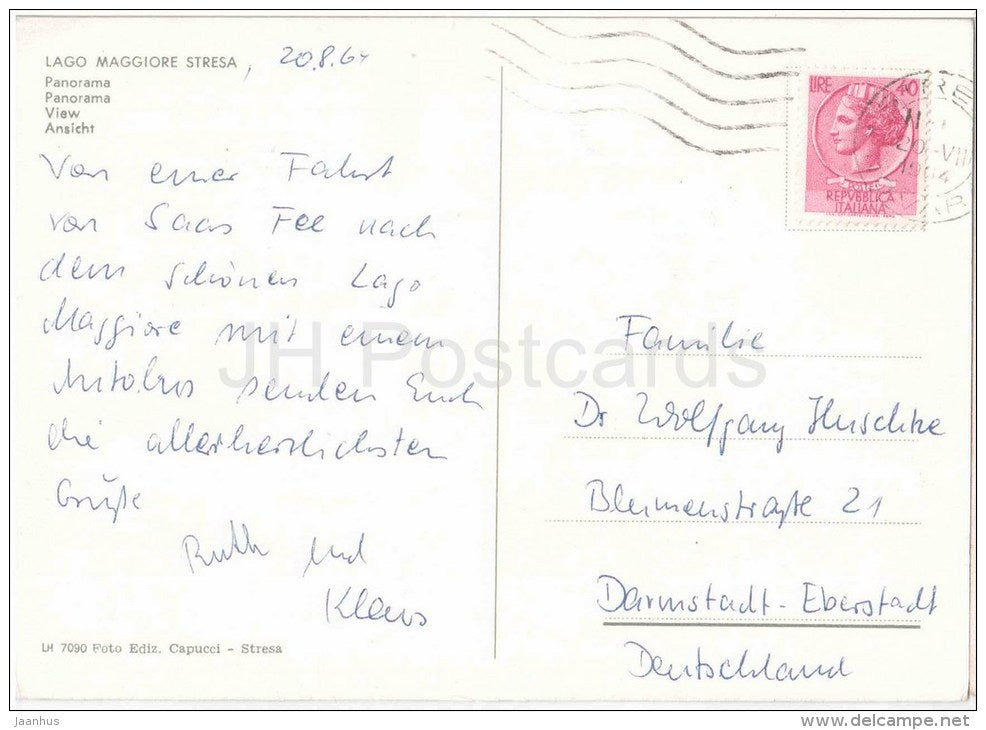 LAGO MAGGIORE STRESA, 20.8.64
Panorama
Panorama
View
Ansicht
Von einer Fahrt
von Saas Fee nach
dem schönen Lago
Maggiore mit einem
Autobus senden Euch
die allerherzlichsten
Grüße
Ruth und
Klaus
LH 7090 Foto Ediz. Capucci - Stresa
LIRE 40
POSTE
REPVBBLICA
ITALIANA
20-VIII
1964
Familie
Dr Wolfgang Huschke
Blumenstraße 21
Darmstadt-Eberstadt
Deutschland
JH Postcards
Jaanhus
delcampe.net